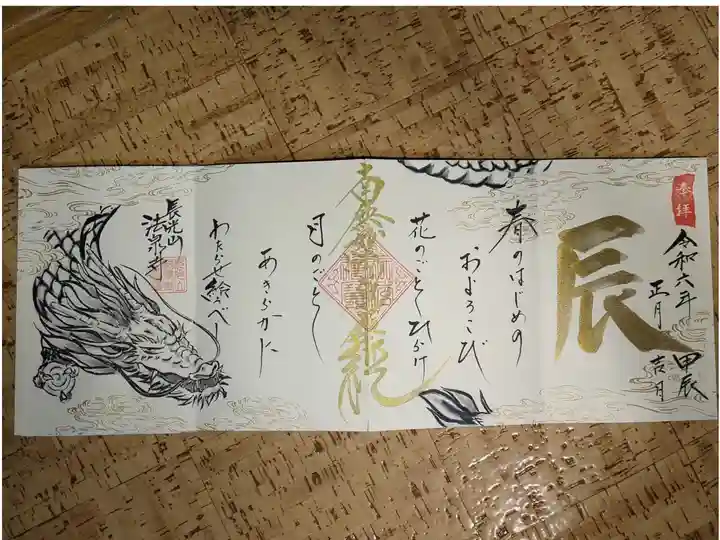 奉拝
令和六年 甲辰
正月 吉日
辰
春のはじめの
およろこび
花のごとくひらけ
月のごとく
あきらかに
わたらせ給べし
法泉寺